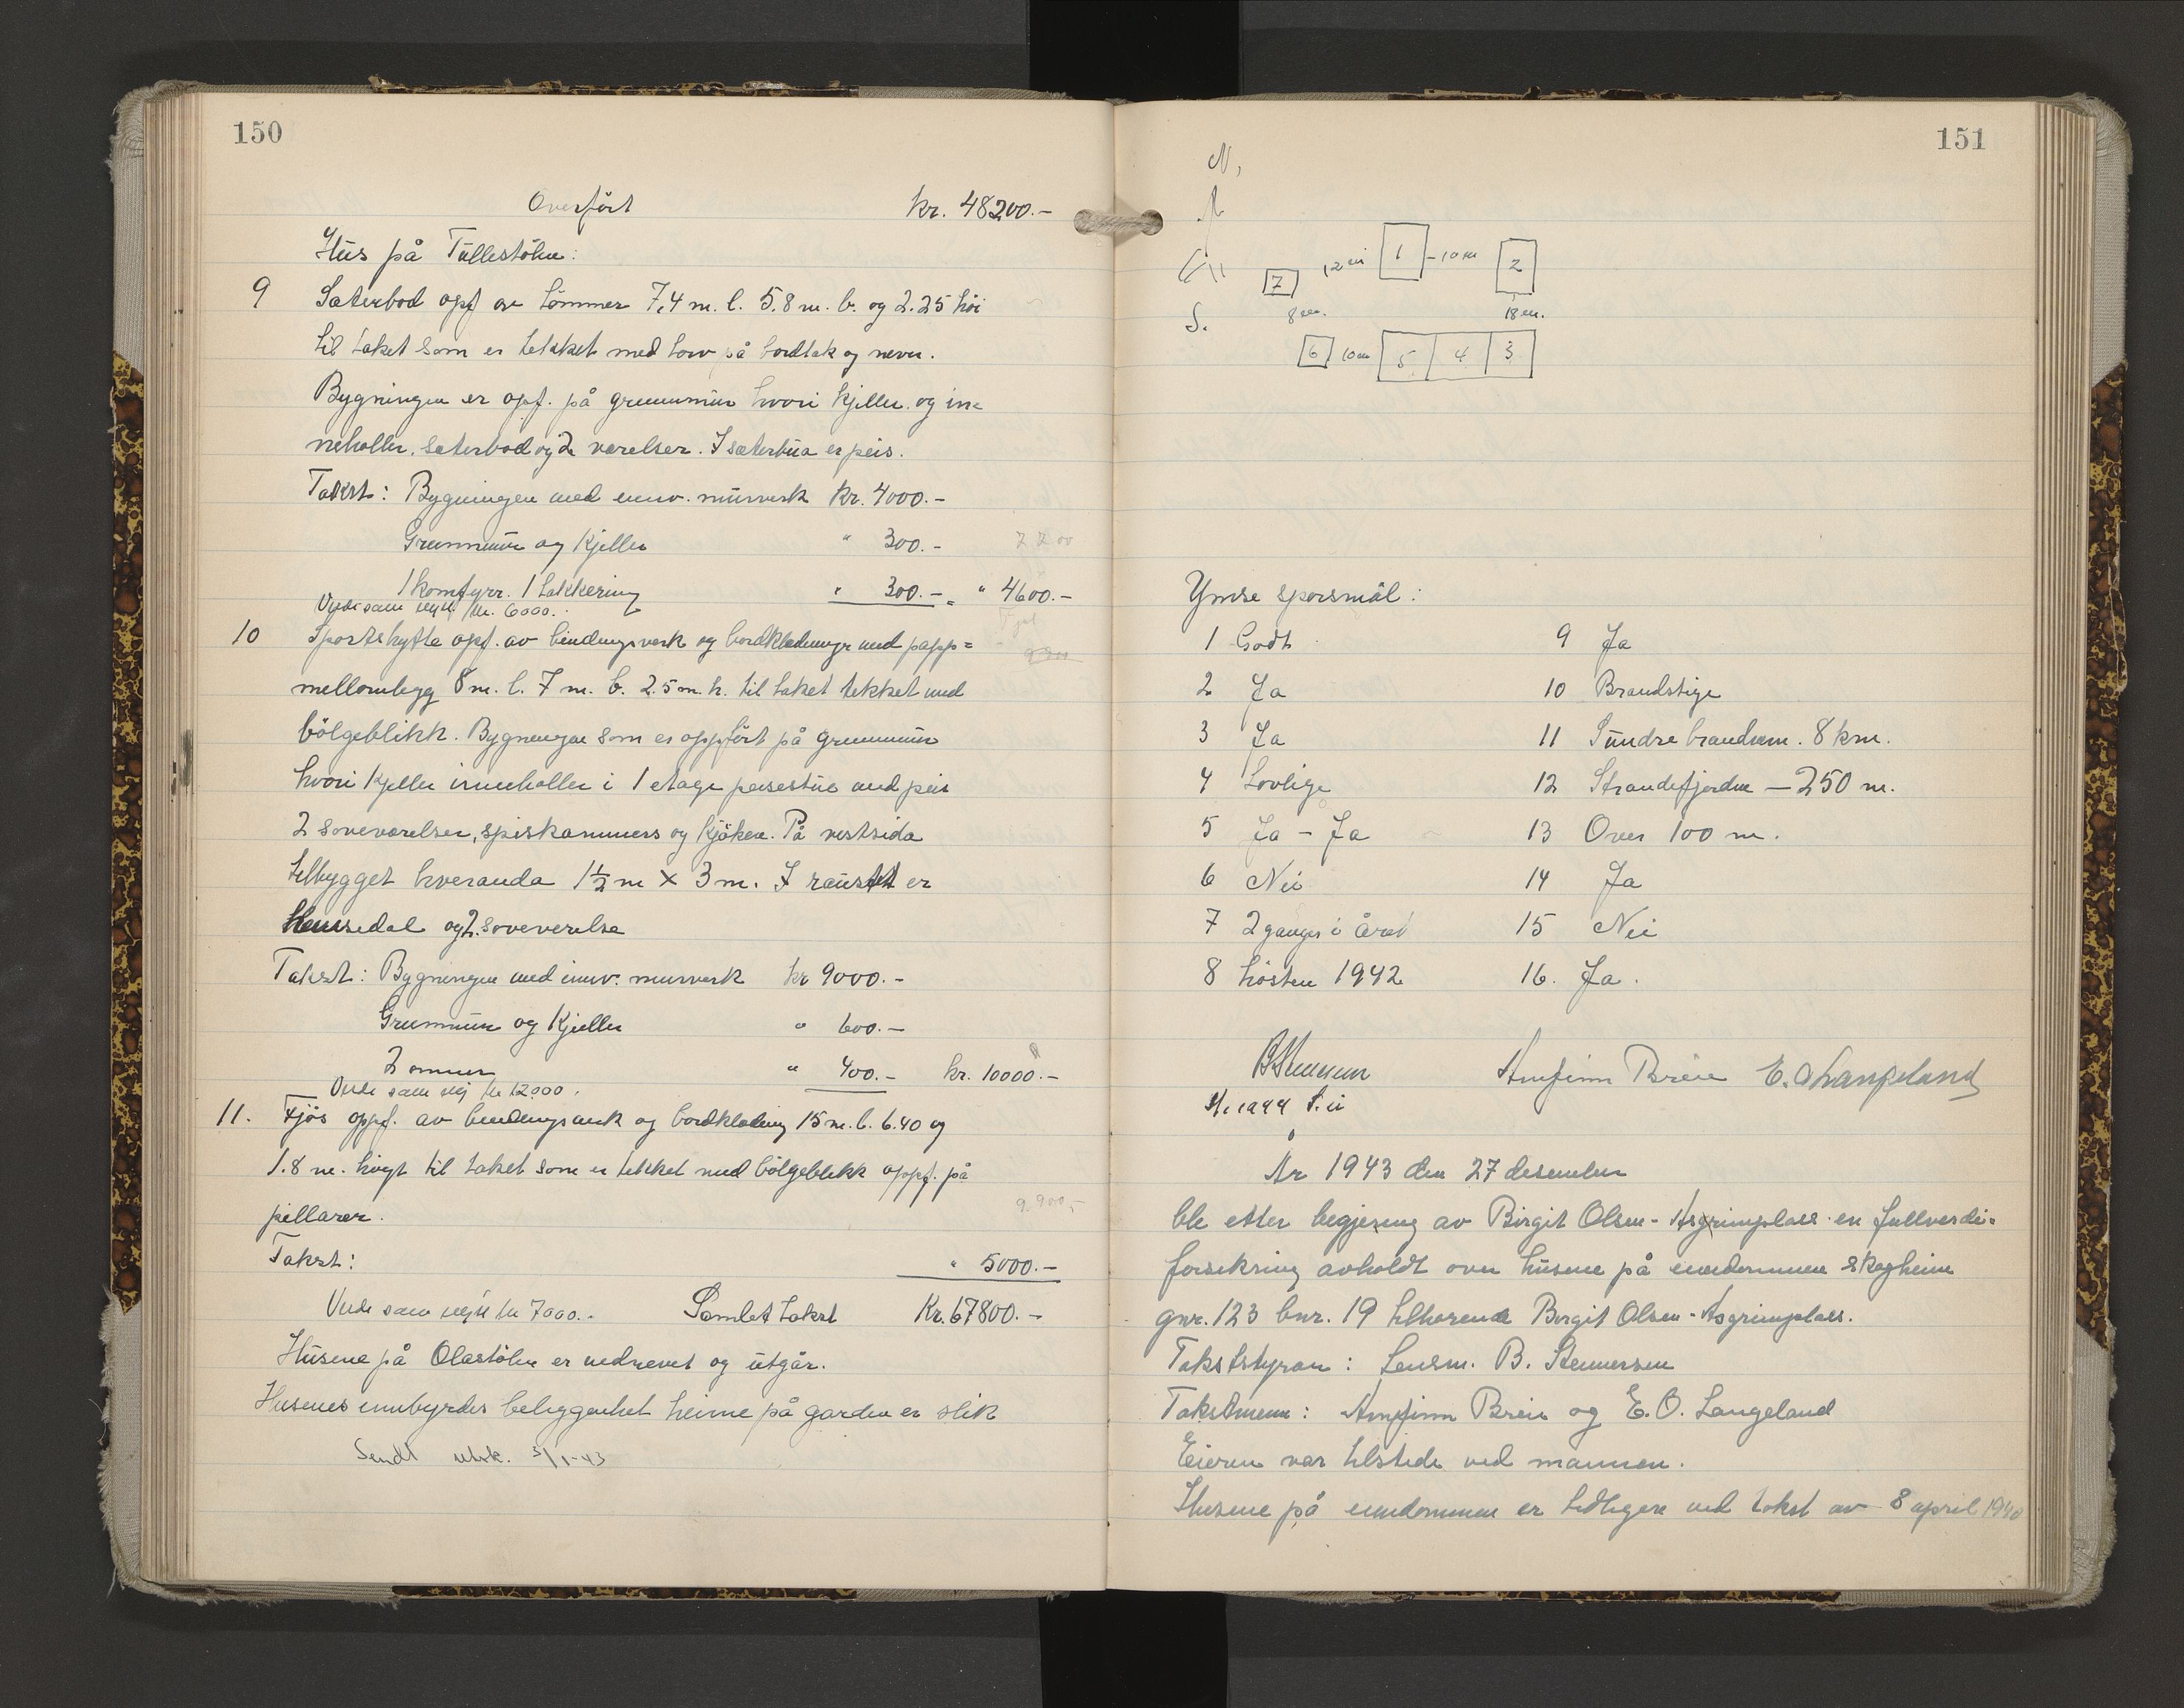 150
Overført kr. 48200.-
Hus på Tüllestölen:
9 Sæterbod opf av tömmer 7,4 m. l. 5.8 m. b. og 2.25 höi
til taket som er tekket med torv på bordtak og never.
Bygningen er opf. på grunnmur hvori kjeller og in=
neholler sæterbod og 2 værelser. I sæterbua er peis.
Takst: Bygningen med innv. murverk kr. 4000.-
Grunnmur og kjeller " 300.- 7200
1 komfyrr. 1 takkering " 300.- = " 4600.-
Verdi som nytt kr. 6000.-
10 Sportshytte opf. av bindingsverk og bordkledning med papp=
mellomlegg 8 m. l. 7 m. b. 2.5 m. h. til taket tekket med
bölgeblikk. Bygningen som er oppfört på grunnmur
hvori kjeller inneholler i 1 etage peisestue med peis
2 soveværelser, spiskammers og kjöken. På vestsida
tilbygget hveranda 1½ m x 3 m. I raustet er
Hemsedal og 2. soveverelse
Takst: Bygningen med innv. murverk kr 9000.-
Grunnmur og kjeller " 600.-
2 omner " 400.- kr. 10000.-
Verdi som nytt kr 12000.
11. Fjös oppf. av bindingsverk og bordkledning 15 m. l. 6.40 og
1.8 m. högt til taket som er tekket med bölgeblikk oppf. på
pillarer. 9.900,-
Takst: " 5000.-
Verdi som nytt kr 7000.- Samlet takst Kr. 67800.-
Husene på Olastölen er nedrevet og utgår.
Husenes innbyrdes beliggenhet heime på garden er slik
Sendt utsk. 3/1-43
151
N,
S.
7 12 m 1 - 10 m 2
8 m. 18 m.
6 10 m 5 4 3
Ymse spörsmål:
1 Godt 9 Ja
2 Ja 10 Brandstige
3 Ja 11 Sundre brandvern. 8 km.
4 Lovlige 12 Strandefjorden - 250 m.
5 Ja - Ja 13 Over 100 m.
6 Nei 14 Ja
7 2 ganger i året 15 Nei
8 hösten 1942 16. Ja.
BStennersen Arnfinn Breie E. O Langeland
År 1943 den 27 desember
ble etter begjering av Birgit Olsen - Asgrimplass en fullverdi=
forsikring avholdt over husene på eiendommen Skogheim
gnr. 123 bnr. 19 tilhørende Birgit Olsen - Asgrimplass.
Takststyrar: Lensm. B. Stennersen
Takstmenn: Arnfinn Breie og E. O. Langeland
Eieren var tilstede ved mannen.
Husene på eiendommen er tidligere ved takst av 8 april 1940